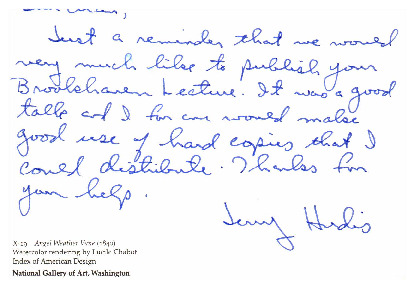 Just a reminder that we would
very much like to publish your
Brookhaven Lecture. It was a good
talk and I for one would make
good use of hard copies that I
could distribute. Thanks for
your help.
Jerry
X-19 Angel Weather Vane (1840)
Watercolor rendering by Lucille Chabot
Index of American Design
National Gallery of Art, Washington